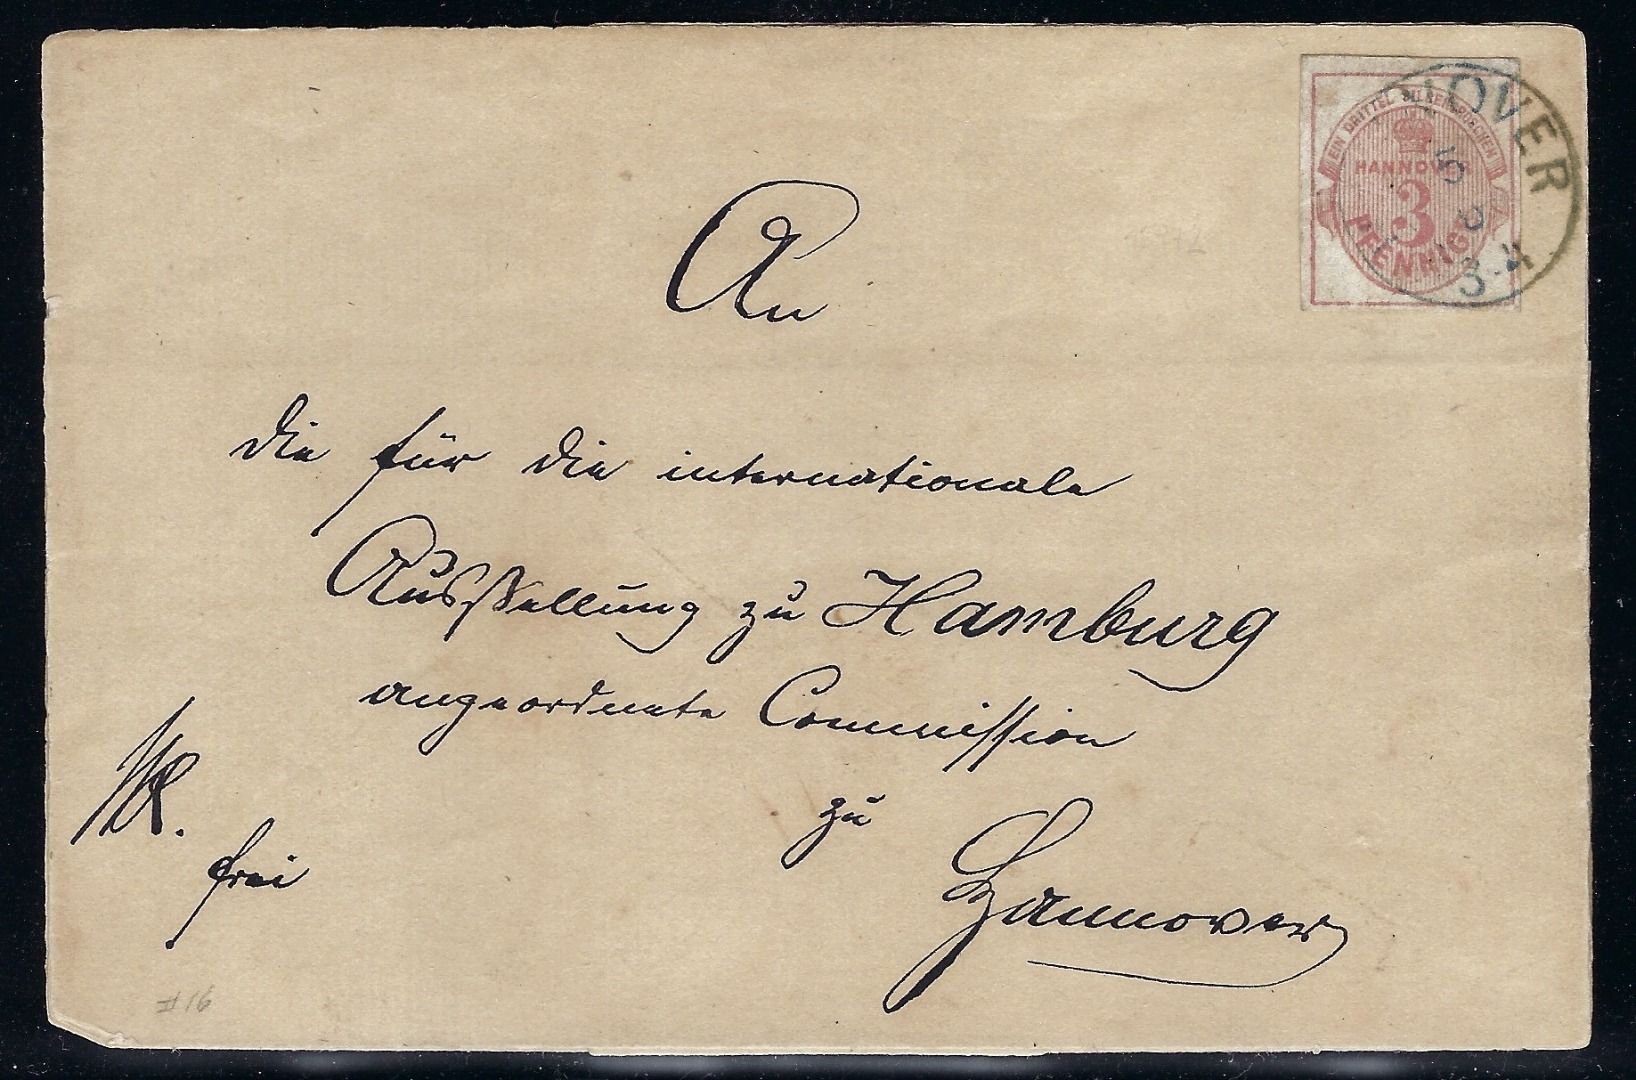 EIN DRITTEL SILBERGROSCHEN
HANNOVER
3
PFENNIGE
NOVER
5
3-4
An
die für die internationale
Ausstellung zu Hamburg
angeordnete Commission
zu
Hannover
frei
#16